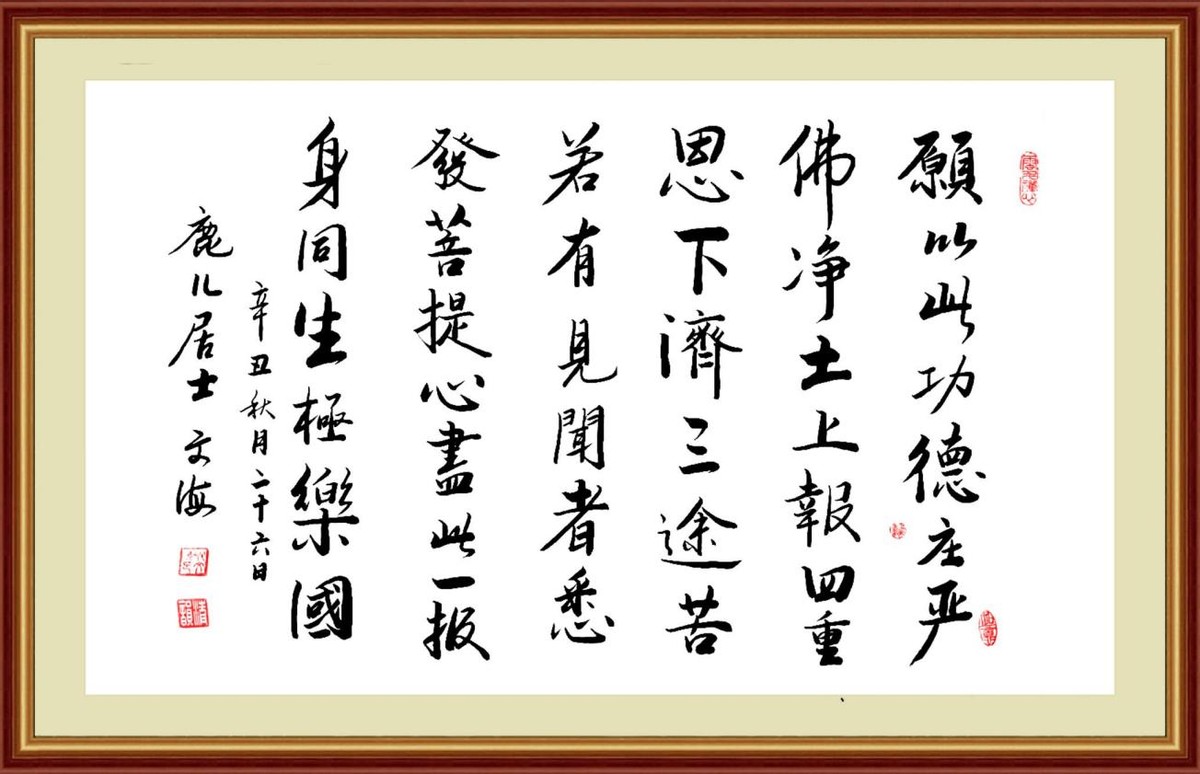 願以此功德庄严
佛净土上報四重
恩下濟三途苦
若有見聞者悉
發菩提心盡此一报
身同生極樂國
辛丑秋月二十六日
鹿儿居士 文海